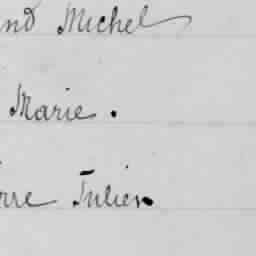 and Michel
Marie.
erre Julien